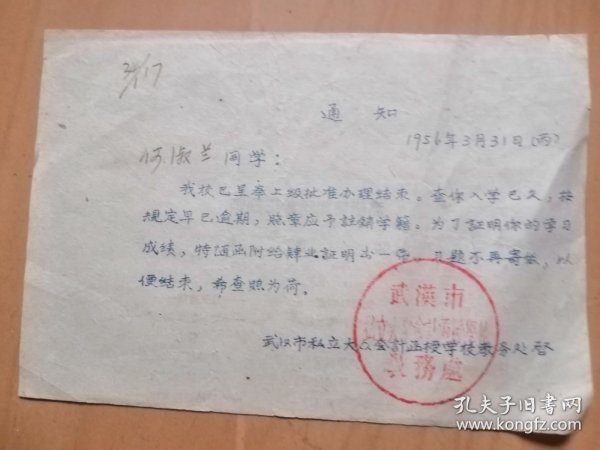 通知
1956年3月31日(丙)
何淑兰同学：
我校已呈奉上级批准办理结束。查你入学已久，按
规定早已逾期，照章应予註销学籍。为了証明你的学习
成绩，特随函附给肄业証明书一件，习题不再寄做，以
便结束，希查照为荷。
武汉市私立大公会計函授学校教务处啓
武漢市
教務處
孔夫子旧书网
www.kongfz.com